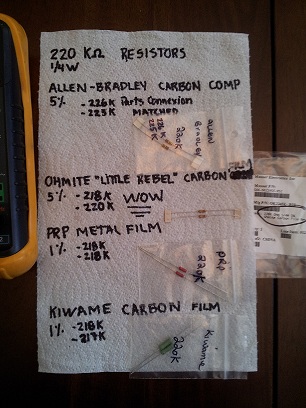 220 KΩ RESISTORS
1/4W
ALLEN-BRADLEY CARBON COMP
5% -226K Parts Connexion
-225K MATCHED
226K
225K
220K
ALLEN
BRADLEY
OHMITE "LITTLE REBEL" CARBON FILM
5% -218K WOW
-220K
PRP METAL FILM
1% -218K
-218K
PRP
220K
KIWAME CARBON FILM
1% -216K
-217K
Kiwame
220K